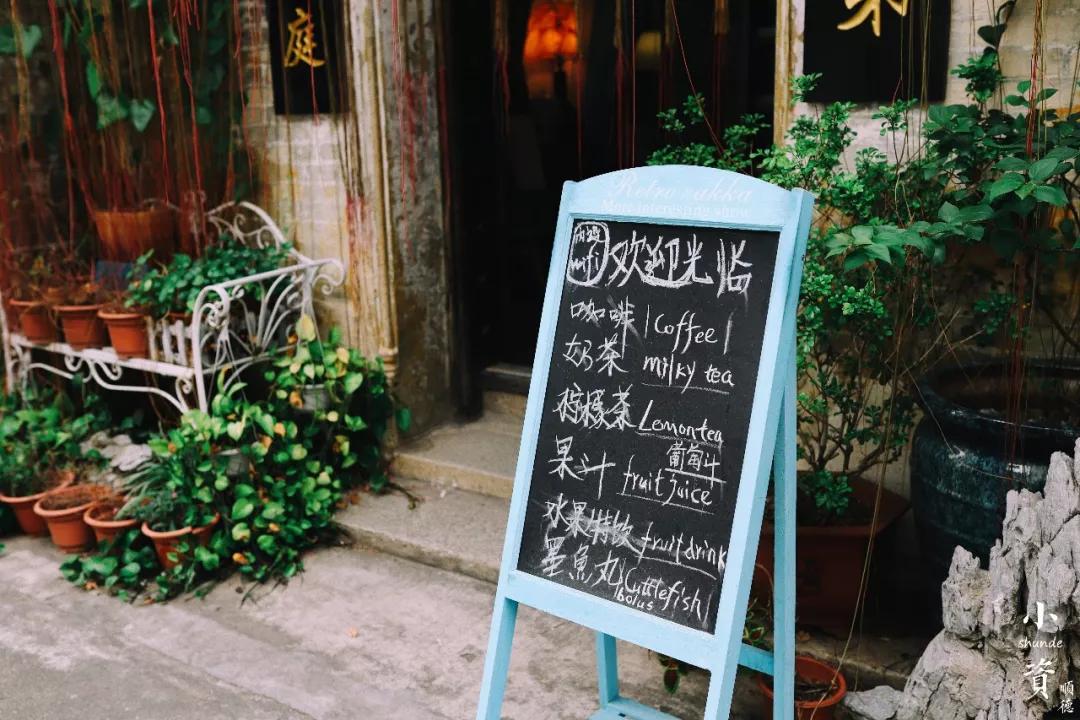 庭
Retro
More interesting show
wifi 欢迎光临
咖啡 Coffee
奶茶 milky tea
柠檬茶 Lemontea
葡萄汁
果汁 fruit juice
水果特饮 fruit drink
墨魚丸 Cuttlefish
bolus
小
shunde
資
順德